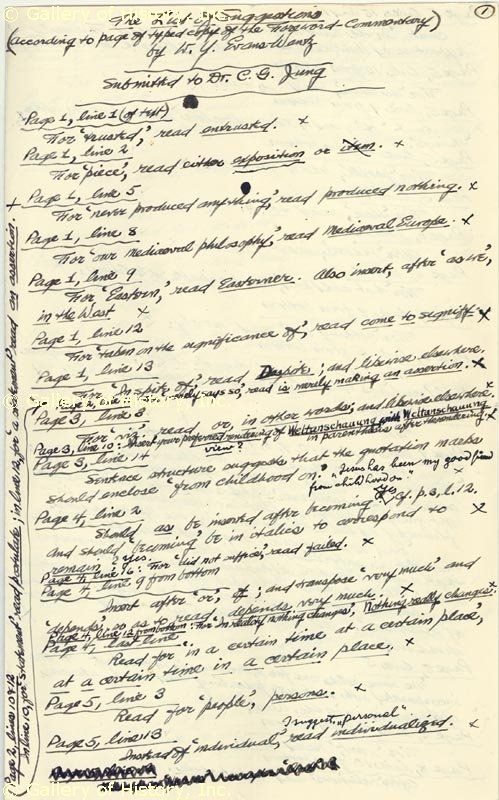 The List of Suggestions
(According to page of typed copy of the Foreword-Commentary)
by W. Y. Evans-Wentz
Submitted to Dr. C. G. Jung
1
Page 1, line 1 (of text)
For "trusted," read entrusted. x
Page 1, line 2
For "piece," read either exposition or item. x
Page 1, line 5
For "never produced anything," read produced nothing. x
Page 1, line 8
For "our mediaeval philosophy," read Mediaeval Europe. x
Page 1, line 9
For "Eastern," read Easterner. Also insert, after "as we",
in the West x
Page 1, line 12
For "taken on the significance of", read come to signify x
Page 1, line 13
For "In spite of," read Despite; and likewise elsewhere.
merely says so, read is merely making an assertion. x
Page 3, line 8
For "viz", read or, in other words; and likewise elsewhere. x
Page 3, line 10: Insert your preferred rendering of Weltanschauung with Weltanschauung
view? in parentheses after the rendering. x
Page 3, line 14
Sentence structure suggests that the quotation marks
should enclose "from childhood on." "Jesus has been my good friend
from childhood on" x
Page 4, line 2
Should as be inserted after becoming? Yes Cf. p. 3, l. 12.
And should becoming be in italics to correspond to x
remain? Yes.
Page 4, line 16: For "did not suffice," read failed. x
Page 4, line 9 from bottom
Insert after "or", of; and transpose "very much" and
"depends", so as to read, depends very much. x
Page 4, line 12 from bottom: For "In reality nothing changes", Nothing really changes. x
Page 4, last line
Read for "in a certain time at a certain place",
at a certain time in a certain place. x
Page 5, line 3
Read for "people", persons. x
Page 5, line 13 I suggest, "personal"
Instead of "individual," read individualized. x
+ Page 2, lines 10 & 12
In line 10, for "statement" read postulate; in line 12, for "a statement" read an assertion.
© Gallery of History, Inc.
© Gallery of History, Inc.